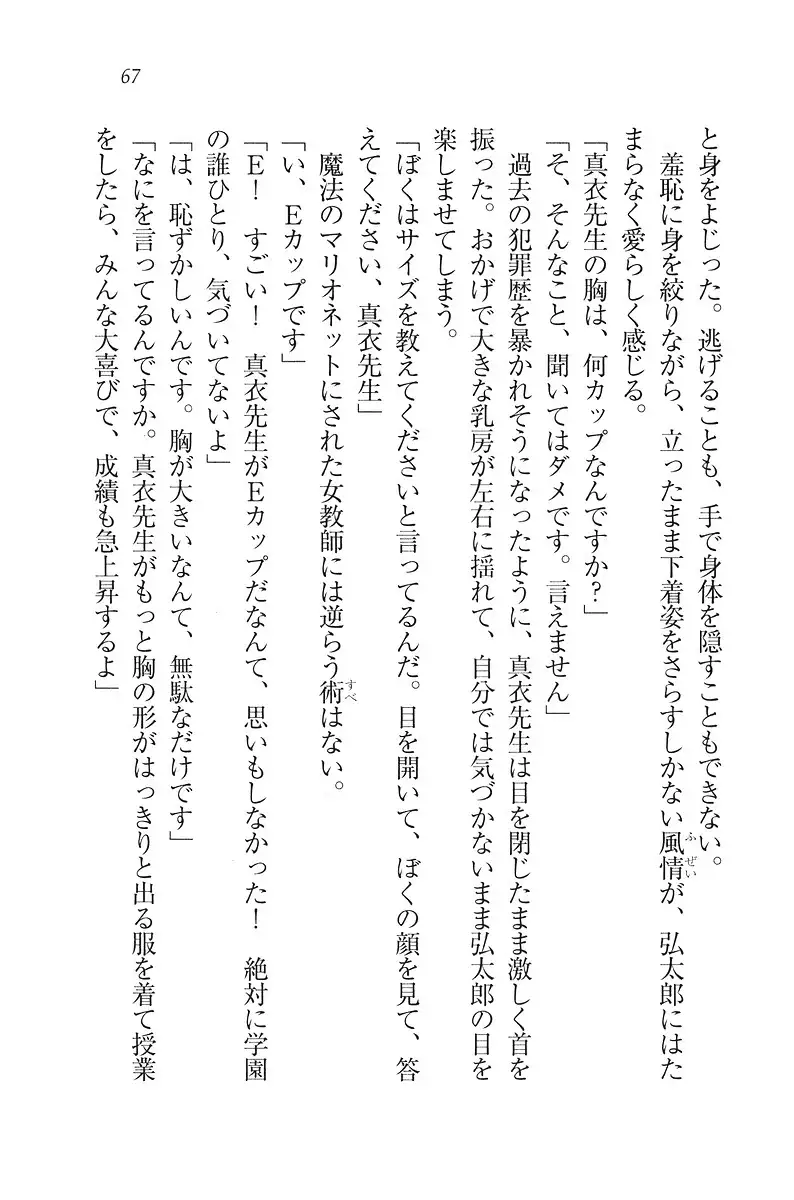 67
と身をよじった。逃げることも、手で身体を隠すこともできない。
羞恥に身を絞りながら、立ったまま下着姿をさらすしかない風情が、弘太郎にはた
まらなく愛らしく感じる。
「真衣先生の胸は、何カップなんですか?」
「そ、そんなこと、聞いてはダメです。言えません」
過去の犯罪歴を暴かれそうになったように、真衣先生は目を閉じたまま激しく首を
振った。おかげで大きな乳房が左右に揺れて、自分では気づかないまま弘太郎の目を
楽しませてしまう。
「ぼくはサイズを教えてくださいと言ってるんだ。目を開いて、ぼくの顔を見て、答
えてください、真衣先生」
魔法のマリオネットにされた女教師には逆らう術はない。
「い、Eカップです」
「E! すごい! 真衣先生がEカップだなんて、思いもしなかった! 絶対に学園
の誰ひとり、気づいてないよ」
「は、恥ずかしいんです。胸が大きいなんて、無駄なだけです」
「なにを言ってるんですか。真衣先生がもっと胸の形がはっきりと出る服を着て授業
をしたら、みんな大喜びで、成績も急上昇するよ」